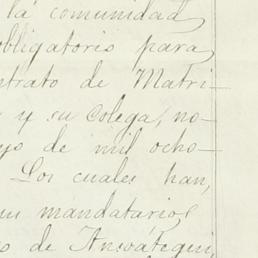 la comunidad
obligatorio para
ntrato de Matri-
y su Colega, no-
yo de mil ocho-
Los cuales han,
un mandatarios
o de Ansoátegui,